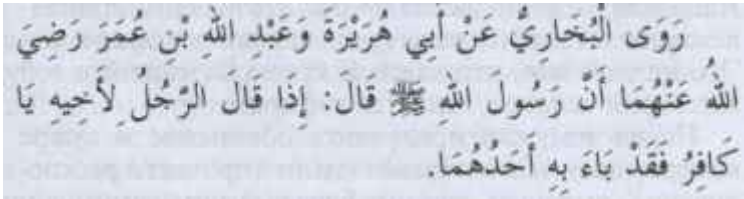 رَوَى الْبُخَارِيُّ عَنْ أَبِي هُرَيْرَةَ وَعَبْدِ اللهِ بْنِ عُمَرَ رَضِيَ
اللهُ عَنْهُمَا أَنَّ رَسُولَ اللهِ ﷺ قَالَ: إِذَا قَالَ الرَّجُلُ لأَخِيهِ يَا
كَافِرُ فَقَدْ بَاءَ بِهِ أَحَدُهُمَا.